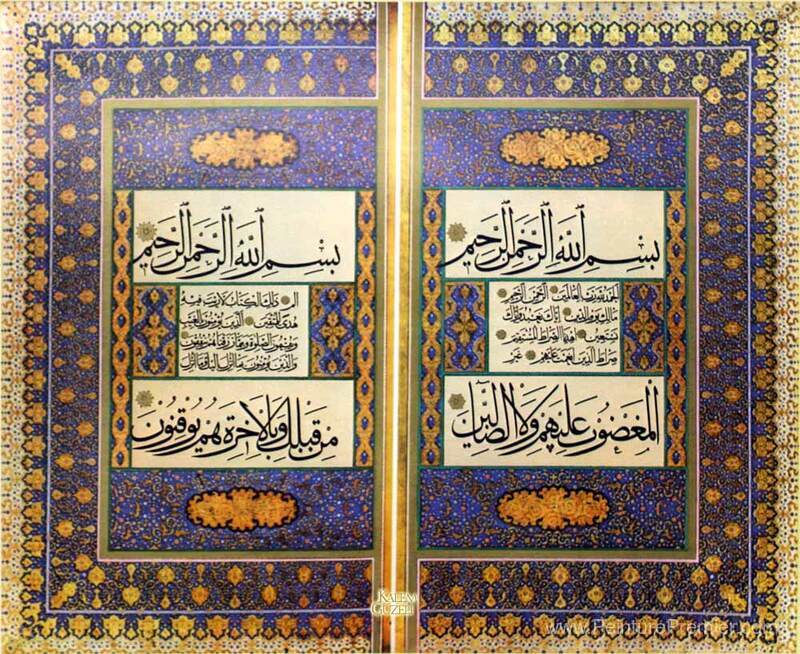 بِسْمِ اللّٰهِ الرَّحْمٰنِ الرَّحِيمِ
الحمد لله رب العالمين الرحمن الرحيم
مالك يوم الدين اياك نعبد واياك
نستعين اهدنا الصراط المستقيم
صراط الذين انعمت عليهم غير
المغضوب عليهم ولا الضالين
بِسْمِ اللّٰهِ الرَّحْمٰنِ الرَّحِيمِ
الم ذلك الكتاب لا ريب فيه
هدى للمتقين الذين يؤمنون بالغيب
ويقيمون الصلوة ومما رزقناهم ينفقون
والذين يؤمنون بما انزل اليك وما انزل
من قبلك وبالاخرة هم يوقنون
KALEM
GÜZELİ
www.PeinturePremier.com